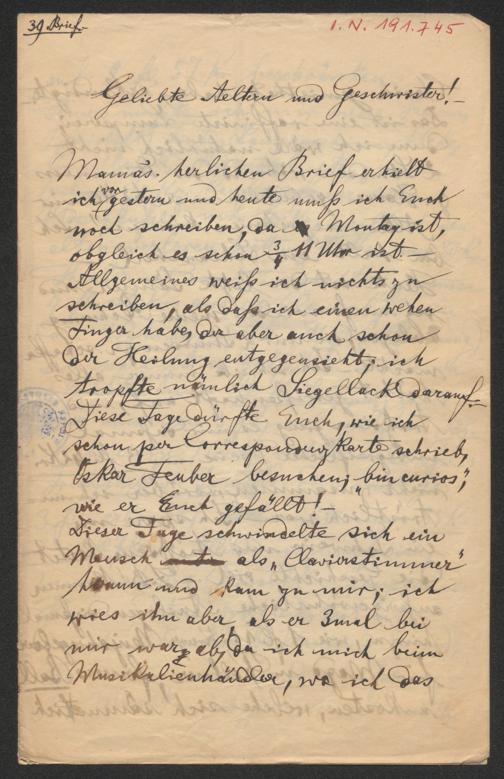 39 Brief.
I. N. 191.745
Geliebte Aeltern und Geschwister! –
Mamas herlichen Brief erhielt
ich vorgestern und heute muß ich Euch
noch schreiben, da Montag ist,
obgleich es schon 3/4 11 Uhr ist –
Allgemeines weiß ich nichts zu
schreiben, als daß ich einen wehen
Finger habe, der aber auch schon
der Heilung entgegensieht; ich
tropfte nämlich Siegellack darauf. –
Diese Tage dürfte Euch, wie ich
schon per Correspondenzkarte schrieb,
Oskar Teuber besuchen; „bin curios",
wie er Euch gefällt! –
Dieser Tage schwindelte sich ein
Mensch als „Clavierstimmer"
herum und kam zu mir; ich
wies ihn aber, als er 3mal bei
mir war, ab, da ich mich beim
Musikalienhändler, wo ich das